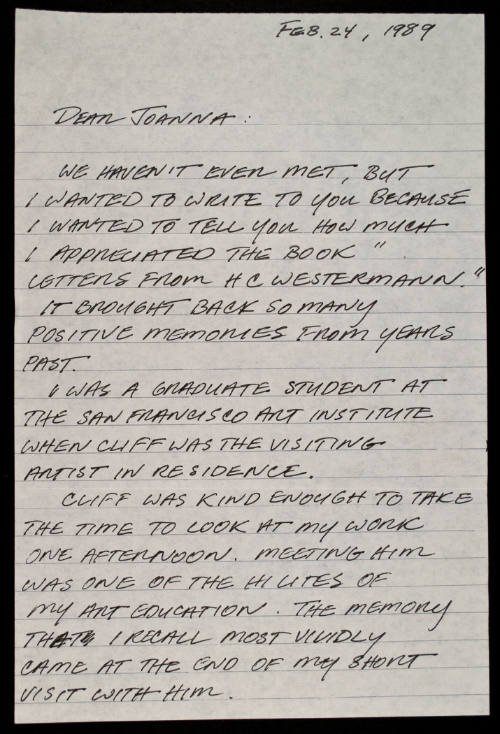 FEB. 24, 1989
DEAR JOANNA:
WE HAVEN'T EVER MET, BUT
I WANTED TO WRITE TO YOU BECAUSE
I WANTED TO TELL YOU HOW MUCH
I APPRECIATED THE BOOK "
LETTERS FROM H C WESTERMANN."
IT BROUGHT BACK SO MANY
POSITIVE MEMORIES FROM YEARS
PAST.
I WAS A GRADUATE STUDENT AT
THE SAN FRANCISCO ART INSTITUTE
WHEN CLIFF WAS THE VISITING
ARTIST IN RESIDENCE.
CLIFF WAS KIND ENOUGH TO TAKE
THE TIME TO LOOK AT MY WORK
ONE AFTERNOON. MEETING HIM
WAS ONE OF THE HILITES OF
MY ART EDUCATION. THE MEMORY
THAT I RECALL MOST VIVIDLY
CAME AT THE END OF MY SHORT
VISIT WITH HIM.